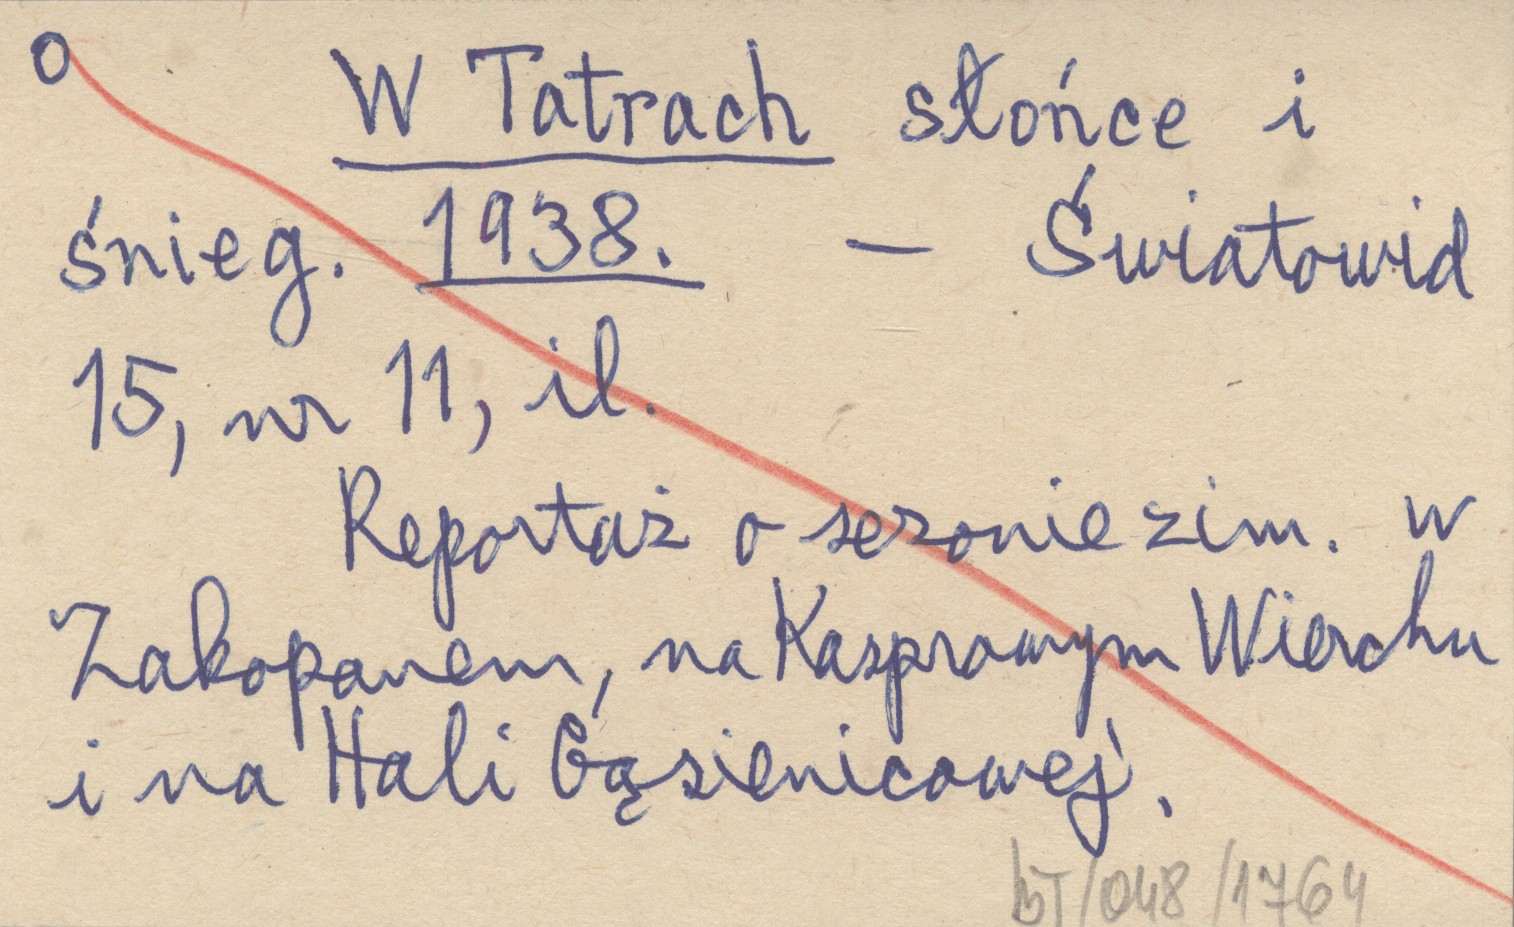 O
W Tatrach słońce i
śnieg. 1938. — Światowid
15, nr 11, il.
Reportaż o sezonie zim. w
Zakopanem, na Kasprowym Wierchu
i na Hali Gąsienicowej.
bT/048/1764